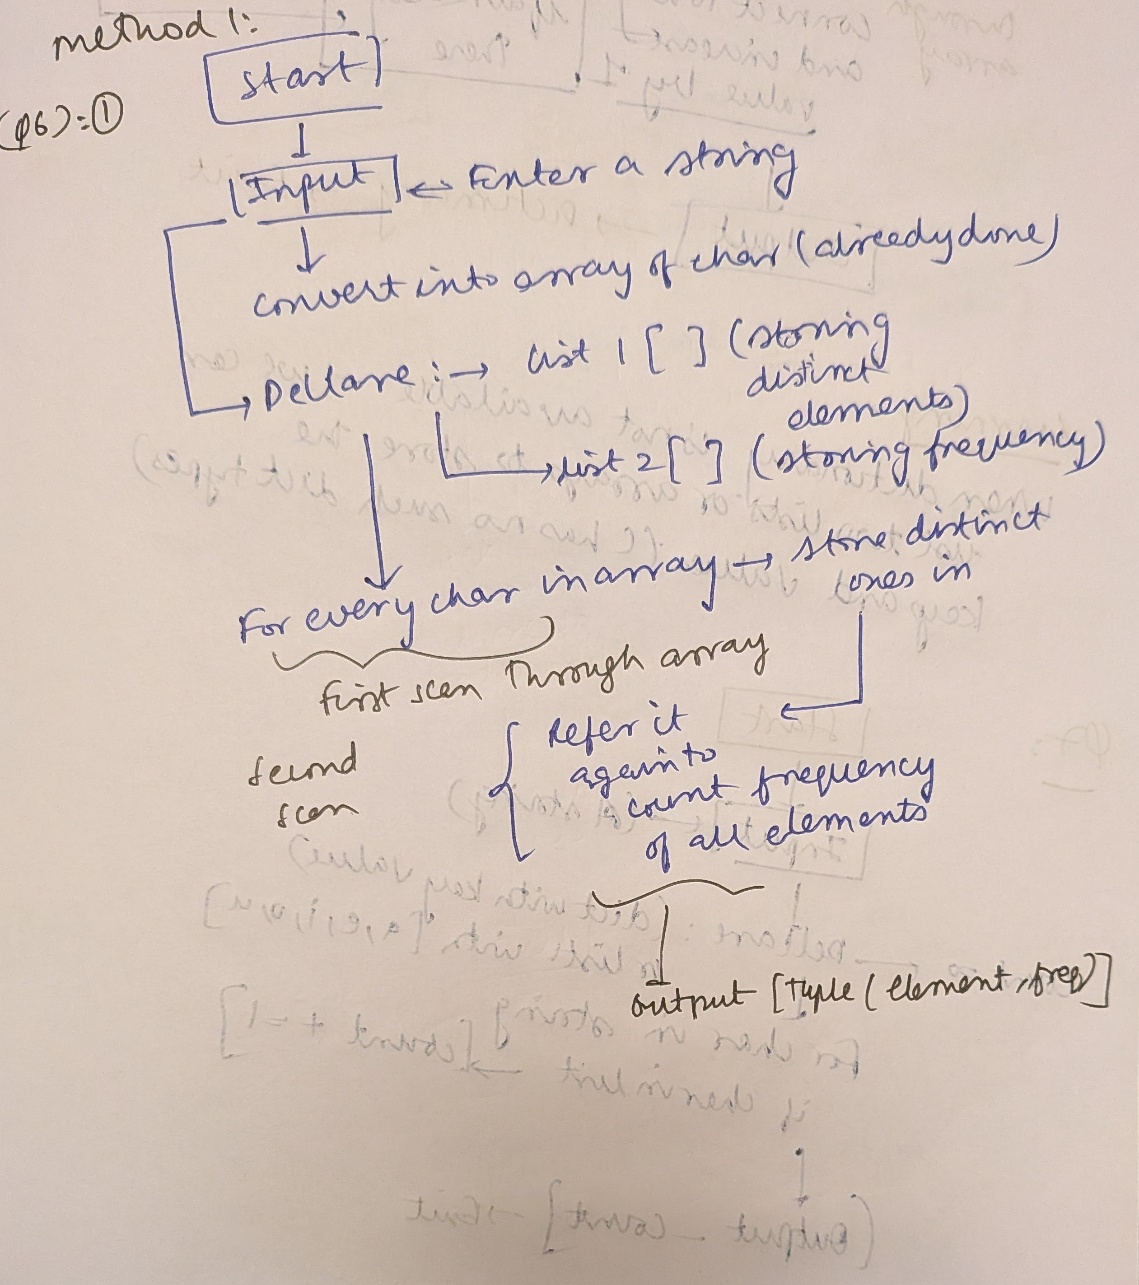 method 1:
(Q6):①
Start
Input ← Enter a string
convert into array of char (alreedy done)
Declare :→ List 1 [ ] (storing
distinct
elements)
→ List 2 [ ] (storing frequency)
For every char in array → store distinct
ones in
first scan Through array
Refer it
again to
count frequency
of all elements
second
scan
output [Tuple (Element, freq)]